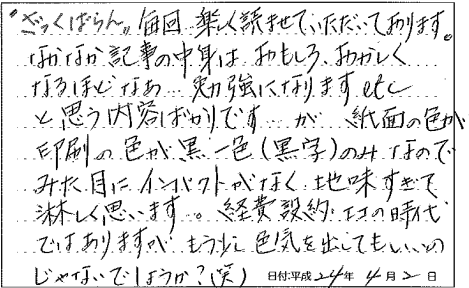 "ざっくばらん" 毎回 楽しく読ませていただいております。
なかなか記事の中身は おもしろ、おかしく
なるほどなあ… 勉強になります etc
と思う内容ばかりです…が 紙面の色が
印刷の色が黒一色(黒字)のみなので
みた目に インパクトがなく 地味すぎて
淋しく思います。経費設約・エコの時代
ではありますが もう少し色気を出してもいいの
じゃないでしょうか?(笑) 日付:平成24年4月2日